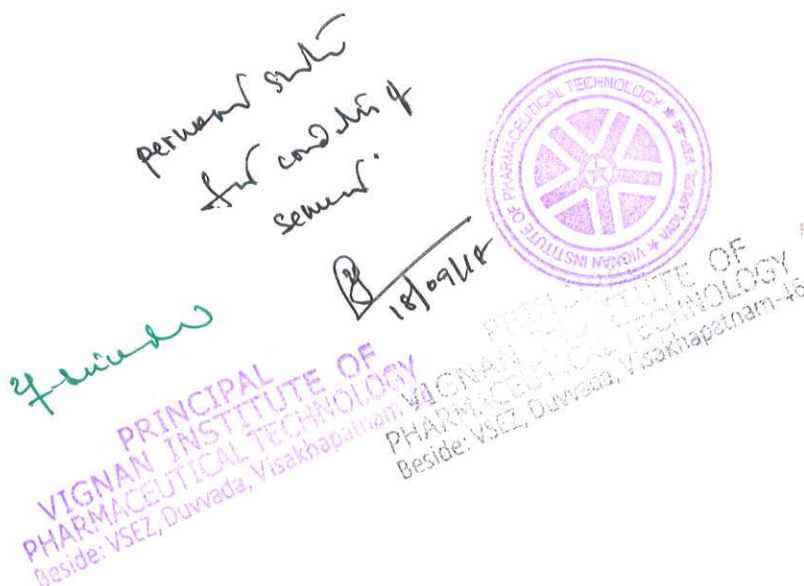 for conducting
seminar.
18/09/18
VIGNAN INSTITUTE OF PHARMACEUTICAL TECHNOLOGY
PRINCIPAL
VIGNAN INSTITUTE OF
PHARMACEUTICAL TECHNOLOGY
Beside: VSEZ, Duvvada, Visakhapatnam
INSTITUTE OF
VIGNAN
PHARMACEUTICAL TECHNOLOGY
Beside: VSEZ, Duvvada, Visakhapatnam-46